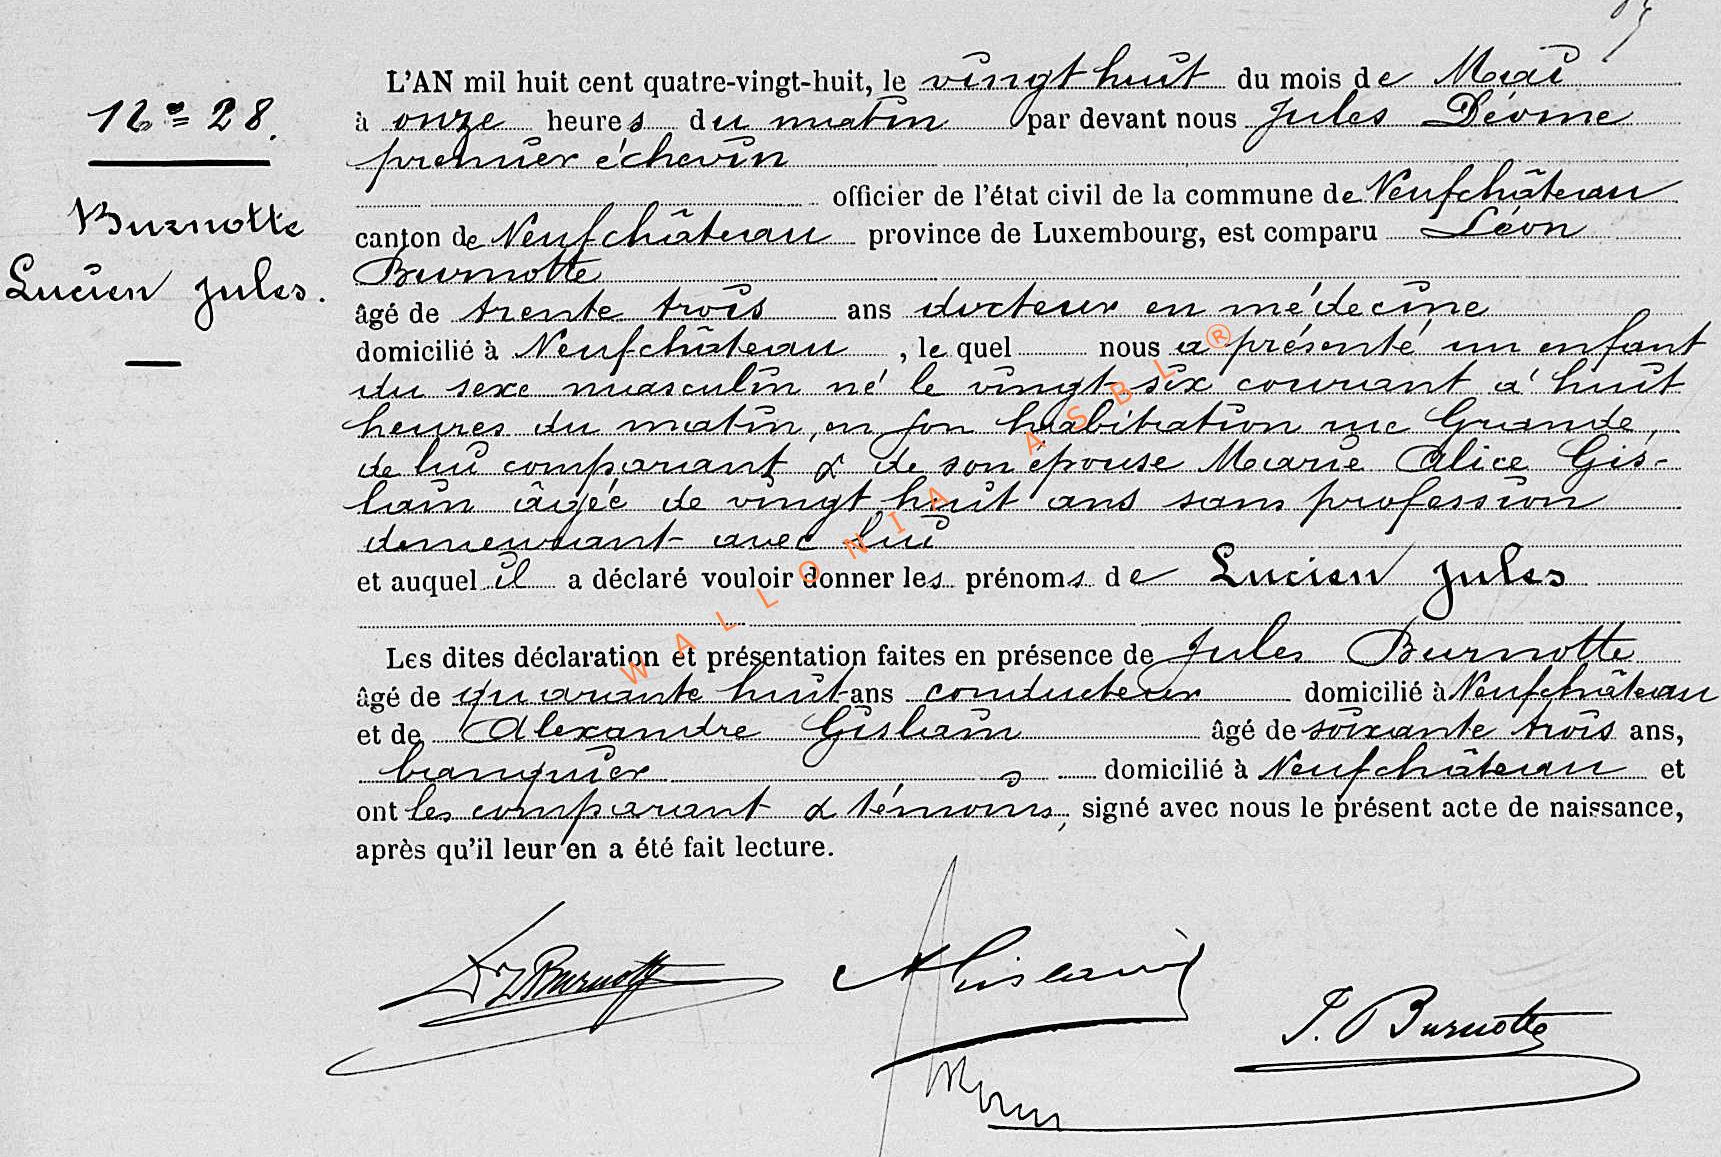 N° 28.
Burnotte
Lucien Jules.
L'AN mil huit cent quatre-vingt-huit, le vingt huit du mois de Mai
à onze heures du matin par devant nous Jules Déome
premier échevin
officier de l'état civil de la commune de Neufchâteau
canton de Neufchâteau province de Luxembourg, est comparu Léon
Burnotte
âgé de trente trois ans docteur en médecine
domicilié à Neufchâteau, le quel nous a présenté un enfant
du sexe masculin né le vingt-six courant à huit
heures du matin, en son habitation rue Grande,
de lui comparant & de son épouse Marie Alice Gis-
lain âgée de vingt huit ans sans profession
demeurant avec lui
et auquel il a déclaré vouloir donner les prénoms de Lucien Jules
Les dites déclaration et présentation faites en présence de Jules Burnotte
âgé de quarante huit ans conducteur domicilié à Neufchâteau
et de Alexandre Gislain âgé de soixante trois ans,
banquier domicilié à Neufchâteau et
ont les comparant & témoins, signé avec nous le présent acte de naissance,
après qu'il leur en a été fait lecture.
WALLONIA ASBL ®
Dr L Burnotte
A Gislain
J. Burnotte